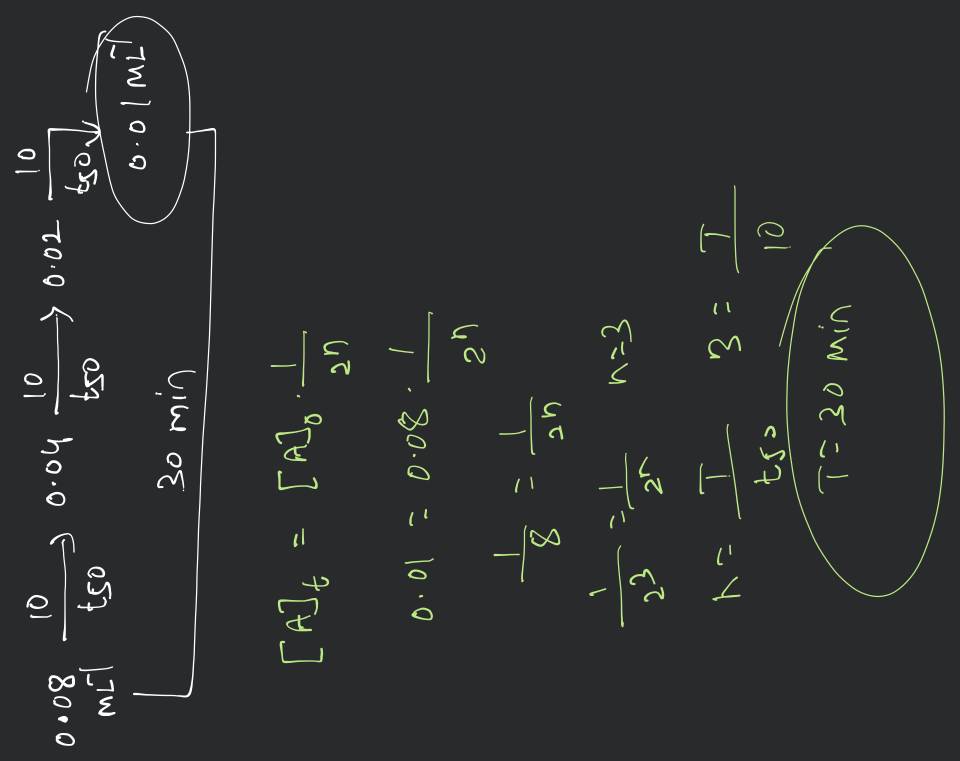 0.08 ML⁻¹ —10/t50→ 0.04 —10/t50→ 0.02 —10/t50→ 0.01 ML⁻¹
30 min
[A]t = [A]0 · 1/2ⁿ
0.01 = 0.08 · 1/2ⁿ
1/8 = 1/2ⁿ
1/2³ = 1/2ⁿ n=3
n = T/t50 3 = T/10
T = 30 min